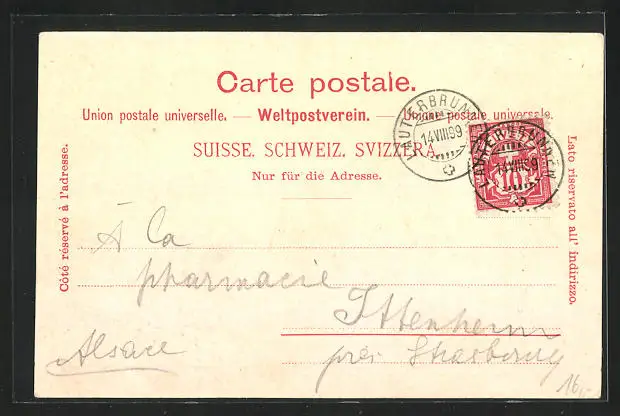 Carte postale.
Union postale universelle. — Weltpostverein. — Unione postale universale.
SUISSE. SCHWEIZ. SVIZZERA.
Nur für die Adresse.
Côté réservé à l'adresse.
Lato riservato all' indirizzo.
LAUTERBRUNNEN
14 VIII 99
LAUTERBRUNNEN
14 VIII 99
10
À La
pharmacie
Ittenheim
près Strasbourg
Alsace
16,-